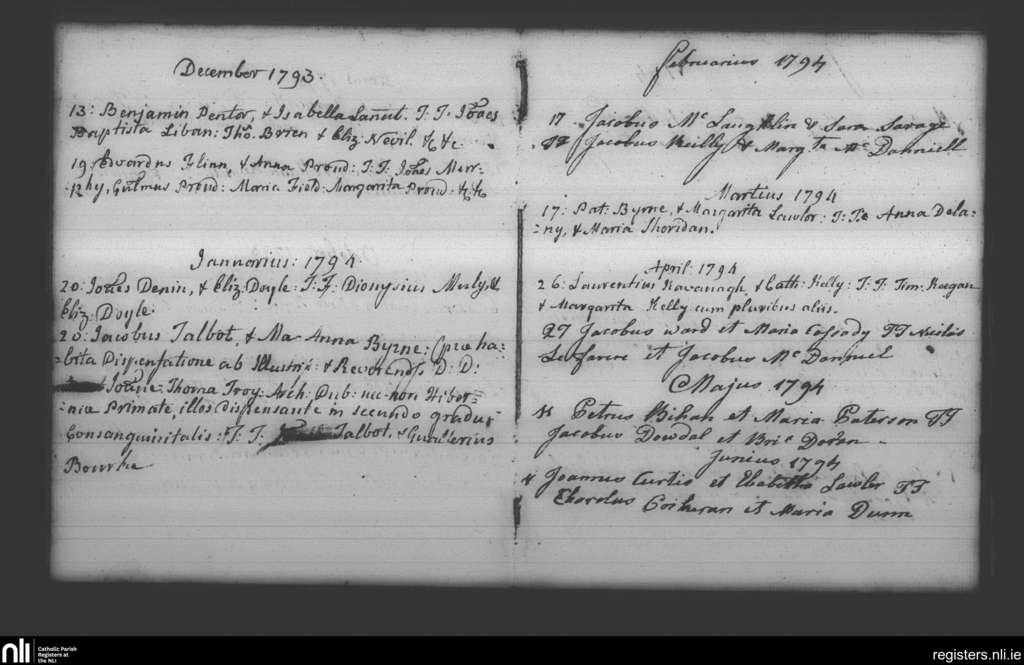 December 1793.
13: Benjamin Dentor, & Isabella : T: T: Ioães
Baptista Liban: Thõ. Brien & Eliz Nevil. &c &c
19 Edvardus Flinn, & Anna Proud: T: T: Ioães Mur-
-phy, Gulmus Proud: Maria Field: Margarita Proud: &c &c
Iannarius: 1794
20: Ioães Denin, & Eliz: Doyle: T: T: Dionysius &
Eliz: Doyle:
20: Iacobus Talbot, & Ma Anna Byrne: (præha-
-bita Dispensatione ab Illustris: & Reverendss D: D:
Ioãne Thoma Troy: Arch: Dub: nec non Hiber-
-niæ Primate, illos dispensante in secundo gradu
Consanguinitatis: T: T: Talbot, & Gualterius
Bourke
Februarius 1794
17 Jacobus Mc Laughlin & Sara Savage
Jacobus Reilly & Margta Mc Danniell
Martius 1794
17: Pat: Byrne, & Margarita Lawlor: T: Te Anna Dela-
-ny, & Maria Sheridan.
April: 1794
26: Laurentius Kavanagh, & Cath: Kelly: T: T: Tim: Keegan
& Margarita Kelly cum pluribus aliis.
27 Jacobus ward et Maria Cassady TT
et Jacobus Mc Danniel
Majus 1794
11 Petrus Bihan et Maria Paterson TT
Jacobus Dowdal et Doran
Junius 1794
Joannes Curtis et Lawler TT
Corkeran et Maria Dunn
nli Catholic Parish
Registers at
the NLI
registers.nli.ie